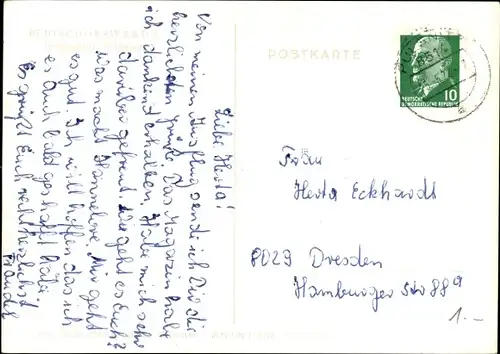 POSTKARTE
10
DEUTSCHE
DEMOKRATISCHE REPUBLIK
Liebe Herta!
Von meinen Ausflug send ich Dir die
herzlichsten Grüße. Das Magazin habe
ich dankend erhalten. Habe mich sehr
darüber gefreut. Wie geht es Euch?
Was macht Hannelore. Mir geht
es gut. Ich will hoffen das ich
es auch bald geschafft habe.
Es grüßt Euch recht herzlichst
Frau
Herta Eckhardt
8023 Dresden
Hamburger Str 88a
1.-